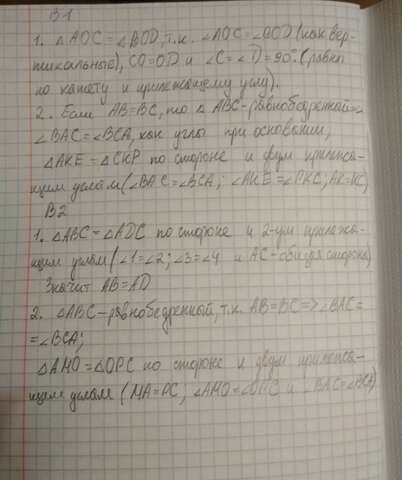 В1
1. △AOC = ∠BOD, т.к. ∠AOC = ∠BOD (как вер-
тикальные), CO=OD и ∠C = ∠D = 90°. (равны
по катету и прилежащему углу).
2. Если AB=BC, то △ ABC - равнобедренный =>
∠BAC = ∠BCA, как углы при основании,
△AKE = △CKP по стороне и двум прилежа-
щим углам (∠BAC = ∠BCA; ∠AKE = ∠PKC; AK=KC)
В2
1. △ABC = △ADC по стороне и 2-ум прилежа-
щим углам (∠1=∠2; ∠3=∠4 и AC - общая сторона)
Значит AB=AD
2. △ABC - равнобедренный, т.к. AB=BC => ∠BAC =
= ∠BCA;
△AMO = △OPC по стороне и двум прилежа-
щим углам (MA=PC; ∠AMO = ∠OPC и ∠BAC = ∠BCA)